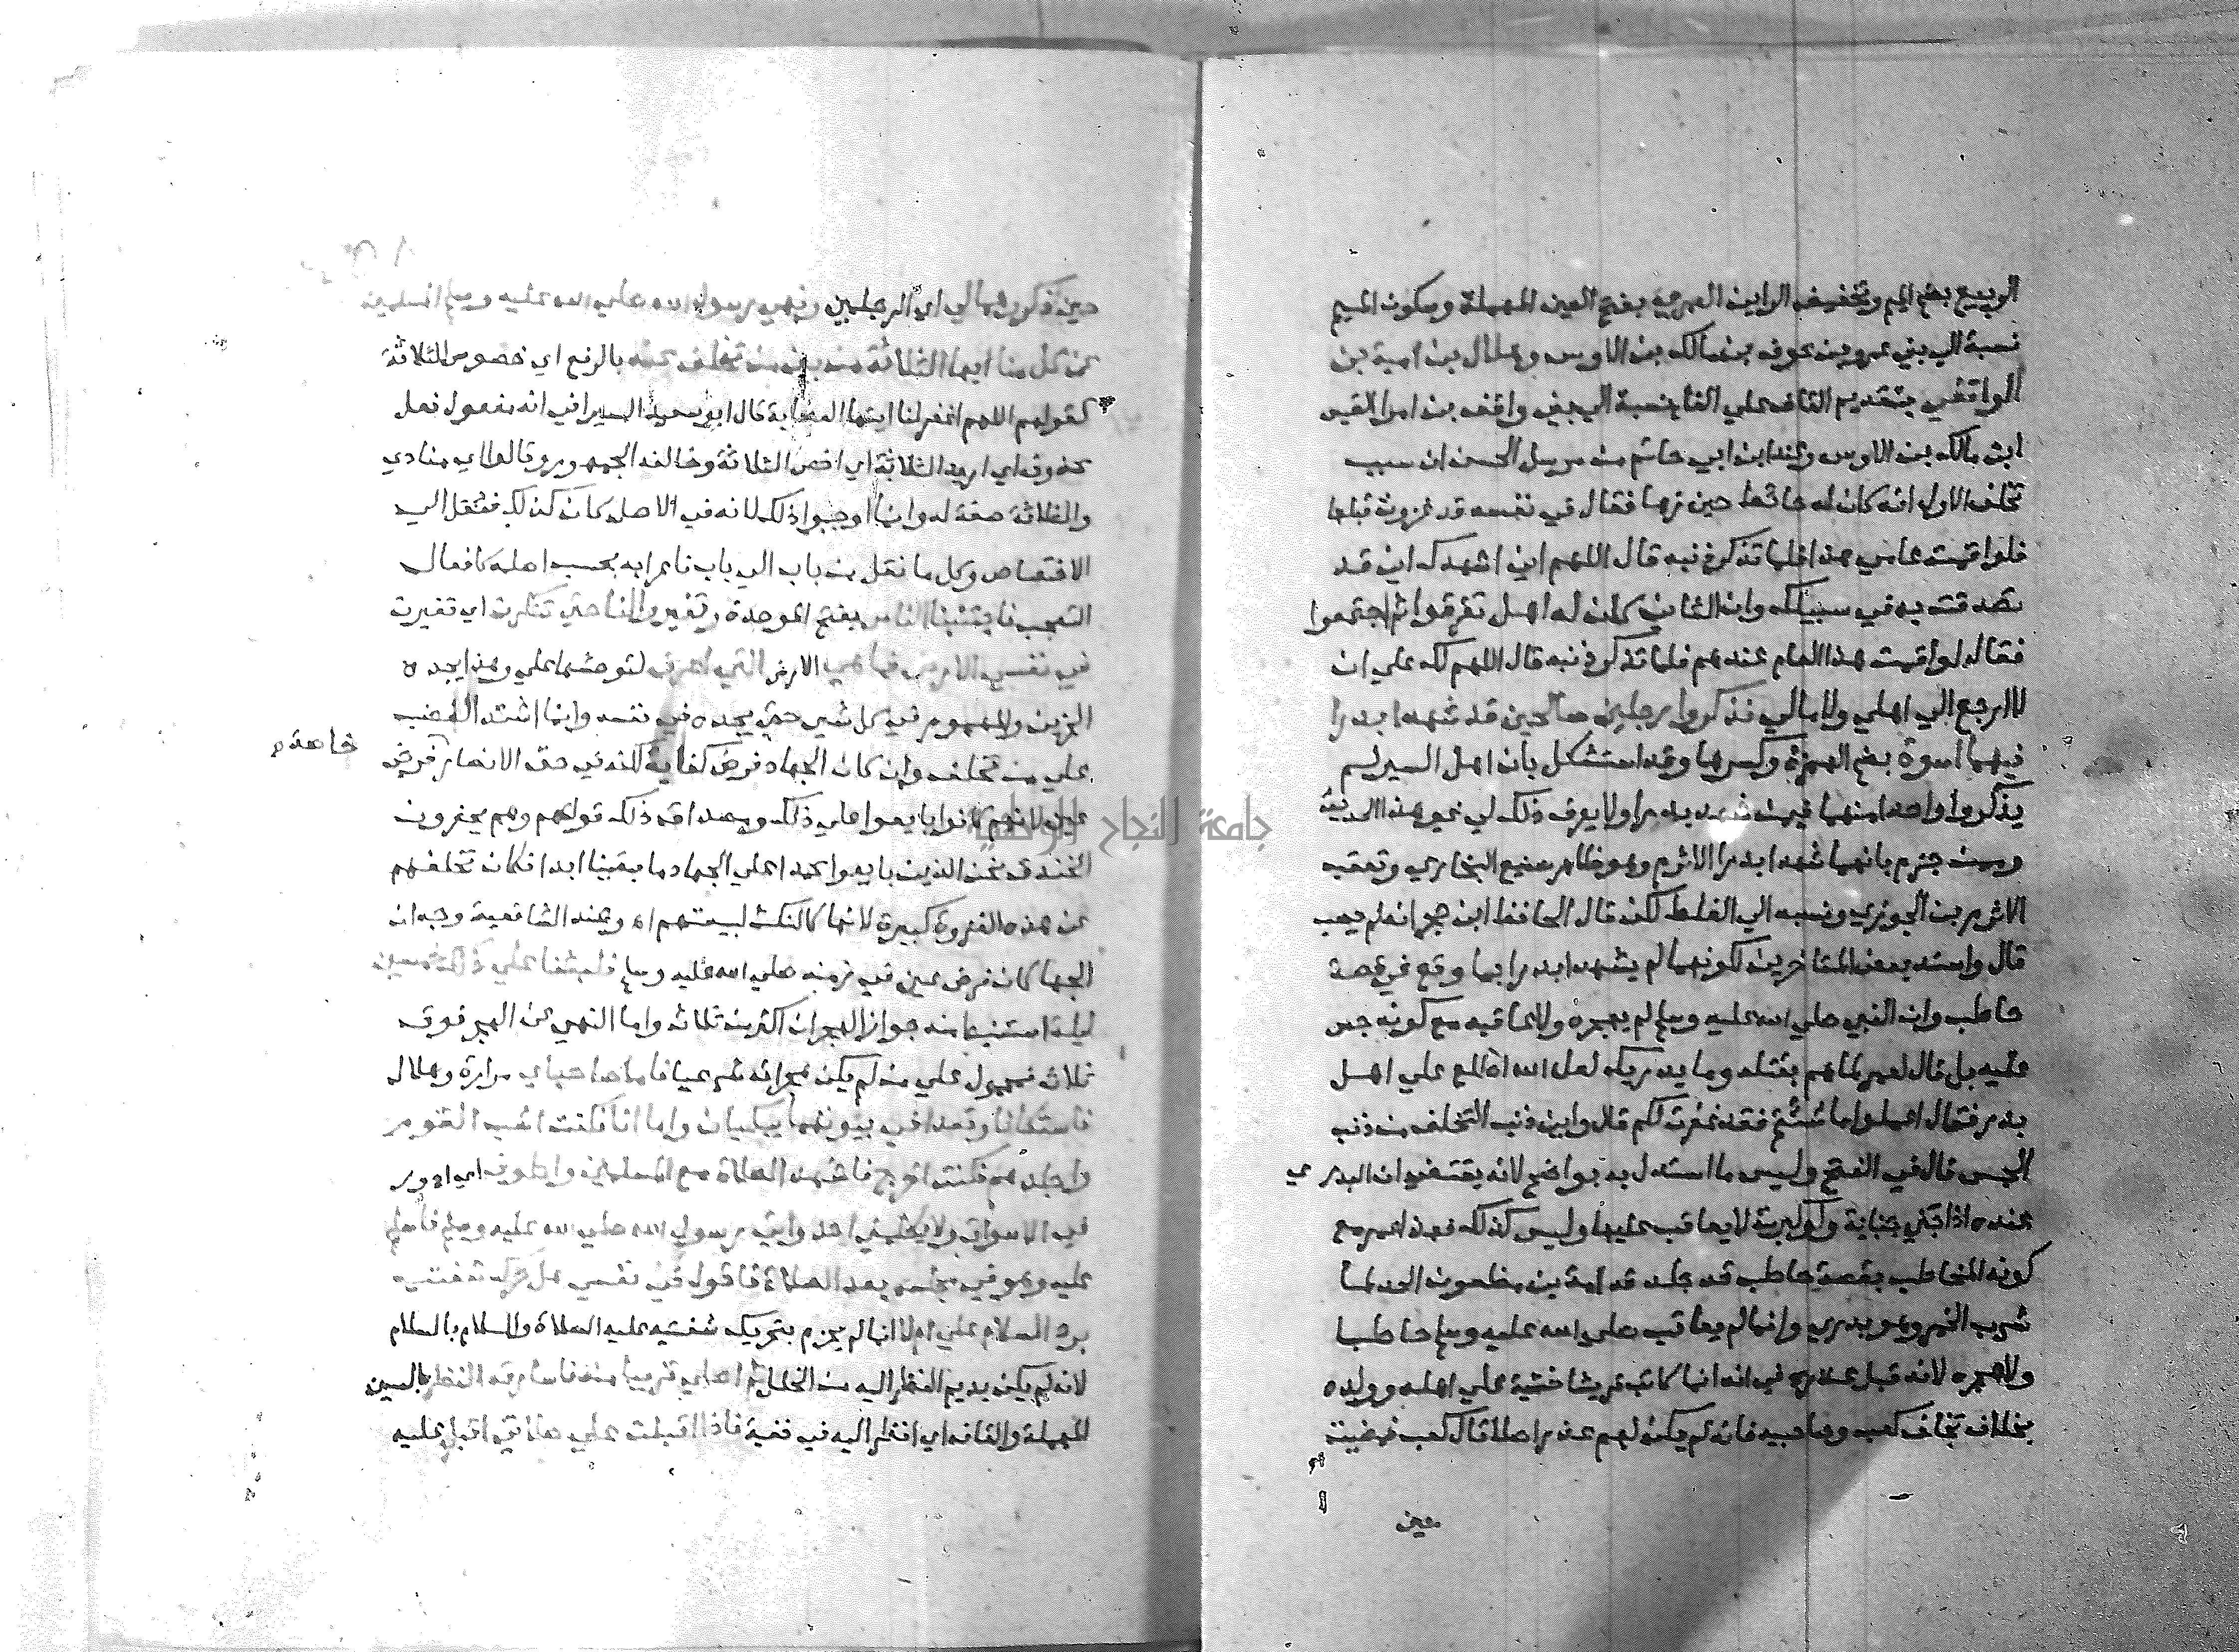 الربيع بضم الميم وتخفيف الراين العمري بفتح العين المهملة وسكون الميم
نسبة الي بني عمرو بن عوف بن مالك بن الاوس وهلال بن امية بن
الواقفي بتقديم القاف علي الفا نسبة الي بني واقف بن امرا القيس
ابن مالك بن الاوس وعند ابن ابي حاتم من مرسل الحسن ان سبب
تخلف الاول انه كان له حائط حين زها فقال في نفسه قد غزوت قبلها
فلو اقمت عامي هذا فلما تذكر ذنبه قال اللهم اني اشهدك اني قد
تصدقت به في سبيلك وان الثاني كان له اهل تفرقوا ثم اجتمعوا
فقال لو اقمت هذا العام عندهم فلما تذكر ذنبه قال اللهم لك علي ان
لا ارجع الي اهلي ولا مالي فذكروا رجلين صالحين قد شهدا بدرا
فيهما اسوة بضم الهمزة وكسرها وقد استشكل بان اهل السير لم
يذكروا واحدا منهما فيمن شهد بدرا ولا يعرف ذلك في غير هذا الحديث
وممن جزم بانهما شهدا بدرا الاثرم وهو ظاهر صنيع البخاري وتعقب
الاثرم بن الجوزي ونسبه الي الغلط لكن قال الحافظ ابن حجر انه لم يصب
قال واستد بعض المتاخرين لكونهما لم يشهدا بدرا بما وقع في قصة
حاطب وان النبي صلي الله عليه وسلم لم يهجره ولا عاقبه مع كونه جس
عليه بل قال لعمر لما هم بقتله وما يدريك لعل الله اطلع علي اهل
بدر فقال اعملوا ما شئتم فقد غفرت لكم قال واين ذنب التخلف من ذنب
الجس قال في الفتح وليس ما استدل به بواضح لانه يقتضي ان البدري
عنده اذا جني جناية ولو كبرت لا يعاقب عليها وليس كذلك فهذا عمر مع
كونه المخاطب بقصة حاطب قد جلد قدامة بن مظعون الحد لما
شرب الخمر وهو بدري وانما لم يعاقب صلي الله عليه وسلم حاطبا
ولا هجره لانه قبل عذره في انه انما كاتب قريشا خشية علي اهله وولده
بخلاف تخلف كعب وصاحبيه فانه لم يكن لهم عذر اصلا قال كعب فمضيت
حين
حين ذكروهما لي اي الرجلين ونهي رسول الله صلي الله عليه وسلم المسلمين
عن كلامنا ايها الثلاثة من بين من تخلف عنه بالرفع اي خصوص الثلاثة
كقولهم اللهم اغفر لنا ايتها العصابة قال ابو سعيد السيرافي انه مفعول فعل
محذوف اي اريد الثلاثة اي اخص الثلاثة وخالفه الجمهور وقالوا اي منادي
والثلاثة صفة له وانما اوجبوا ذلك لانه في الاصل كان كذلك فنقل الي
الاختصاص وكل ما نقل من باب الي باب فاعرابه بحسب اصله كافعال
التعجب فاجتنبنا الناس بفتح الموحدة وتغيروا لنا حتي تنكرت اي تغيرت
في نفسي الارض فما هي الارض التي اعرف لتوحشها علي وهذا يجده
الحزين والمهموم في كل شي حتي يجده في نفسه وانما اشتد الغضب
علي من تخلف وان كان الجهاد فرض كفاية لكنه في حق الانصار فرض
خاصة
عين لانهم كانوا بايعوا علي ذلك ومصداق ذلك قولهم وهم يحفرون
الخندق نحن الذين بايعوا محمدا علي الجهاد ما بقينا ابدا فكان تخلفهم
عن هذه الغزوة كبيرة لانها كالنكث لبيعتهم اه وعند الشافعية وجه ان
الجهاد كان فرض عين في زمنه صلي الله عليه وسلم فلبثنا علي ذلك خمسين
ليلة استنبط منه جواز الهجران اكثر من ثلاث واما النهي عن الهجر فوق
ثلاث فمحمول علي من لم يكن هجرانه شرعيا فاما صاحباي مرارة وهلال
فاستكانا وقعدا في بيوتهما يبكيان واما انا فكنت اشب القوم
واجلدهم فكنت اخرج فاشهد الصلاة مع المسلمين واطوف اي ادور
في الاسواق ولا يكلمني احد واتي رسول الله صلي الله عليه وسلم فاسلم
عليه وهو في مجلسه بعد الصلاة فاقول في نفسي هل حرك شفتيه
برد السلام علي ام لا انما لم يجزم بتحريك شفتيه عليه الصلاة والسلام بالسلام
لانه لم يكن يديم النظر اليه من الخجل ثم اصلي قريبا منه فاسارقه النظر بالسين
المهملة والقاف اي انظر اليه في خفية فاذا اقبلت علي صلاتي اقبل عليه
جامعة النجاح الوطنية